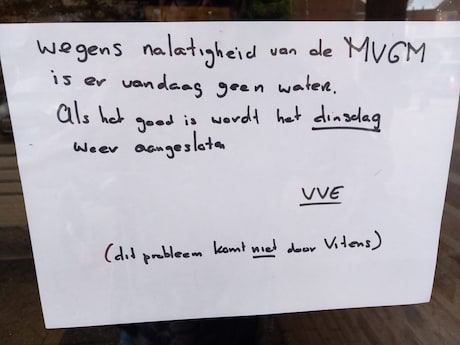 wegens nalatigheid van de MVGM
is er vandaag geen water.
Als het goed is wordt het dinsdag
weer aangesloten
VVE
(dit probleem komt niet door Vitens)